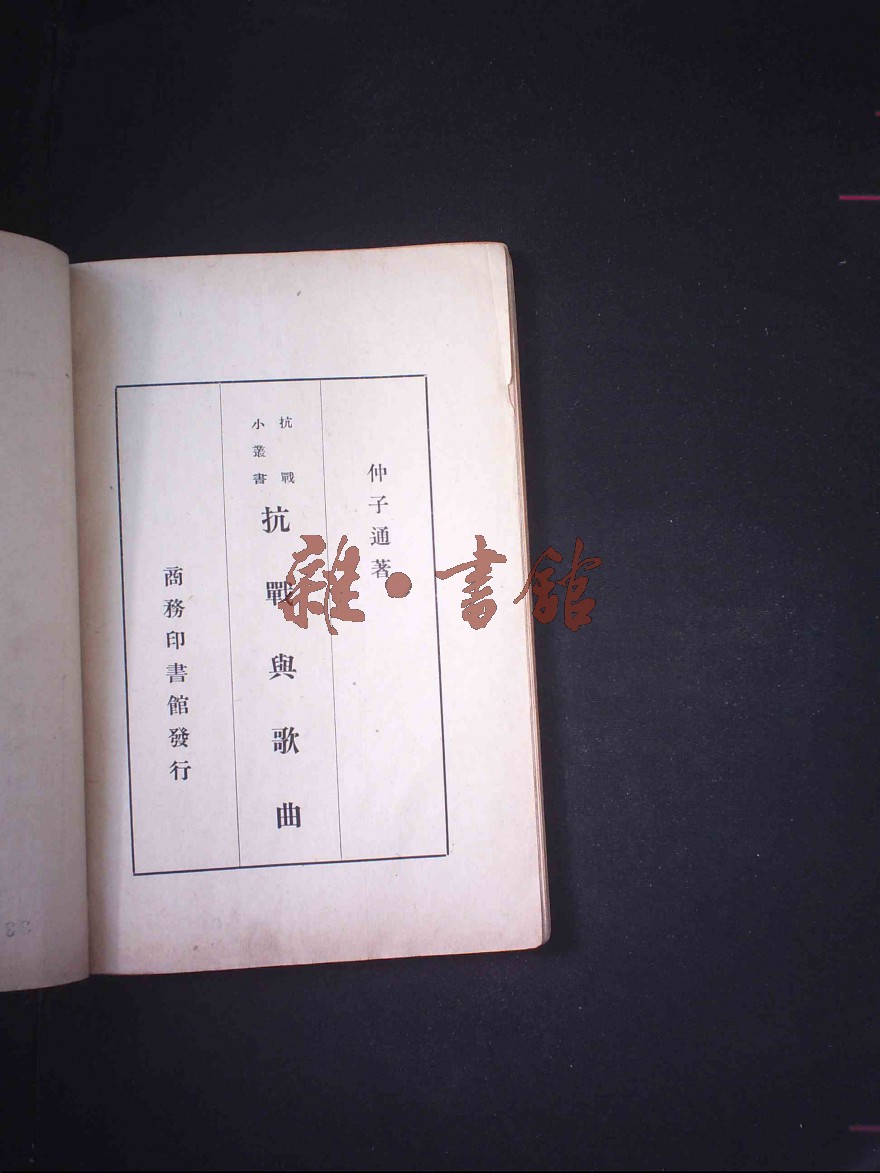 仲子通著
抗戰
小叢書
抗戰與歌曲
商務印書館發行
雜·書館